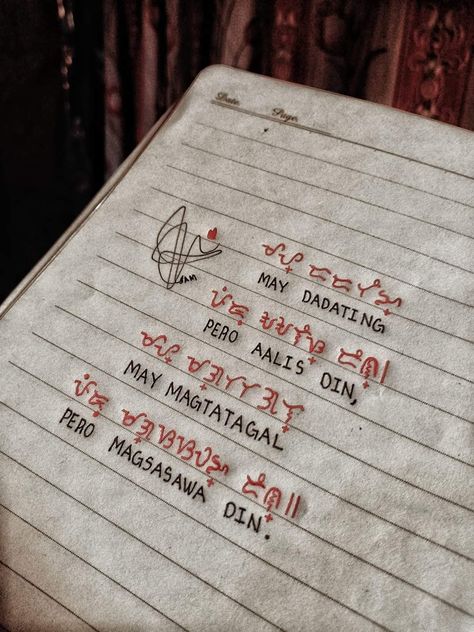 Date: Page:
ᜋᜌ᜔ ᜇᜇᜆᜒᜅ᜔
MAY DADATING
ᜉᜒᜇᜓ ᜀᜀᜎᜒᜐ᜔ ᜇᜒᜈ᜔᜶
PERO AALIS DIN,
ᜋᜌ᜔ ᜋᜄ᜔ᜆᜆᜄᜎ᜔
MAY MAGTATAGAL
ᜉᜒᜇᜓ ᜋᜄ᜔ᜐᜐᜏ ᜇᜒᜈ᜔᜶
PERO MAGSASAWA DIN.